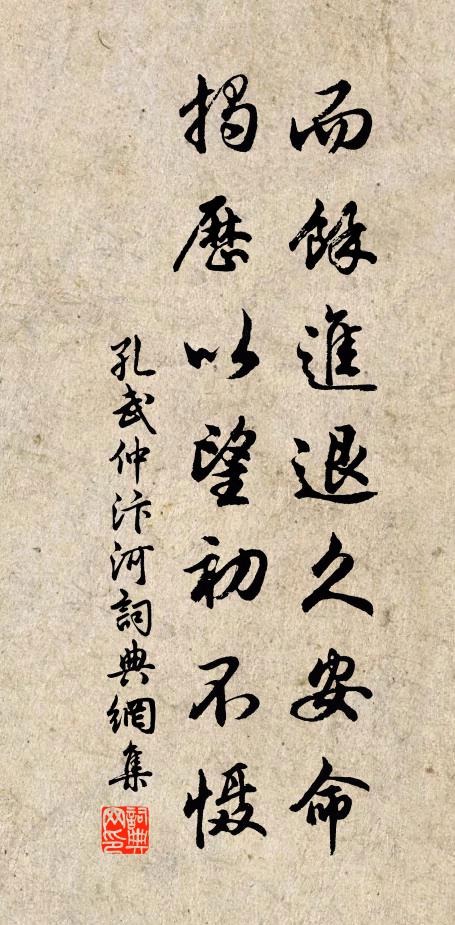 而餘進退久安命
揭歷以望初不慑
孔武仲汴河詞典網集
詞典網印